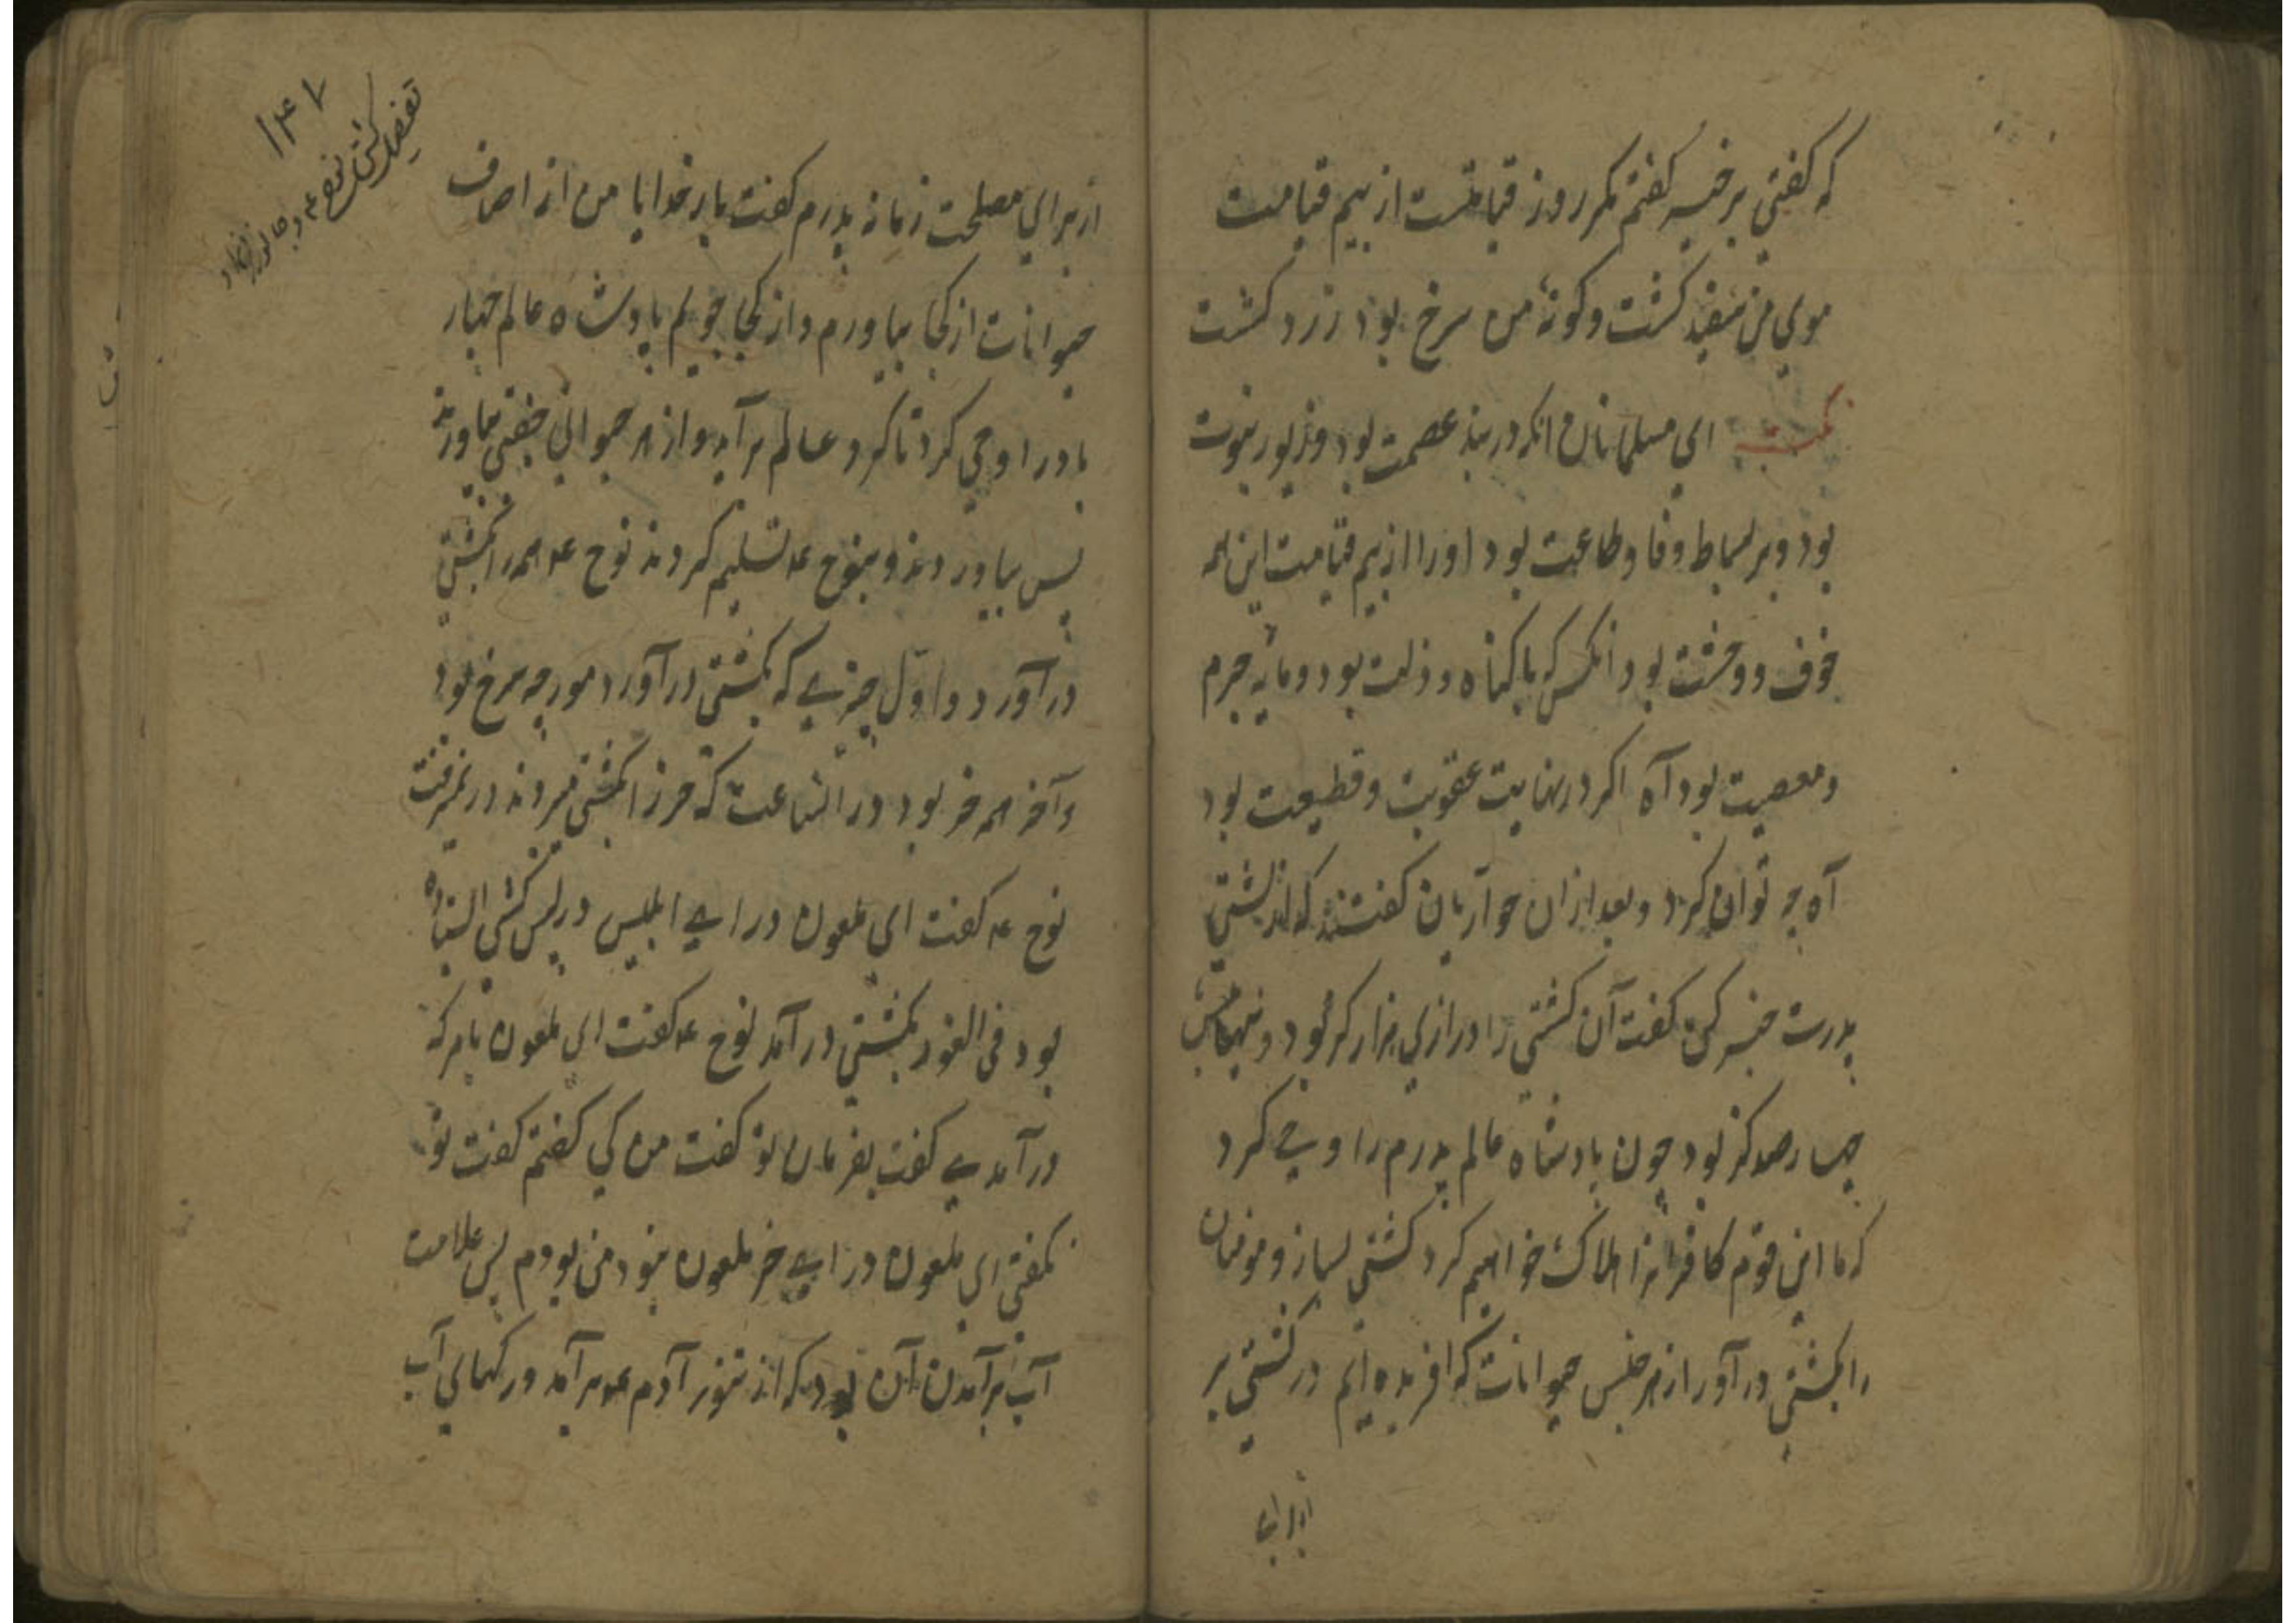 که کفتی برخیز کفتم مکر روز قیامتست از بیم قیامت
موی من سفید کشت و کونهٔ من سرخ بود زرد کشت
نکته ای مسلمانان انکه در بند عصمت بود و زیور نبوت
بود و بر بساط وفا و طاعت بود او را از بیم قیامت این همه
خوف و وحشت بود انکس که با کناه و ذلت بود و مایه جرم
و معصیت بود آه اکر در نهایت عقوبت و قطیعت بود
آه چه توانی کرد و بعد از ان حواریان کفتند که از کشتی
پدرت خبر کن کفت آن کشتی را درازی هزار کز بود و پهناش
چهارصد کز بود چون بادشاه عالم پدرم را وحی کرد
که ما این قوم کافرانرا هلاک خواهیم کرد کشتی بساز و مومنان
را بکشتی در آور از هر جنس حیوانات که افریده ایم در کشتی بر
از برای
۱۴۷
تفصیل کشتی نوح ع و جانوران
از برای مصلحت زمانه پدرم کفت بار خدایا من از اصناف
حیوانات از کجا بیاورم و از کجا جویم پادشاه عالم جبار
باد را وحی کرد تا کرد عالم برآید و از هر حیوانی جفتی بیاورند
پس بیاوردند و بنوح ع تسلیم کردند نوح ع همه را بکشتی
در آورد و اول چیزی که بکشتی در آورد مورچه سرخ بود
و آخر همه خر بود در انساعت که خر را بکشتی میبردند در نمیرفت
نوح ع کفت ای ملعون در ای ابلیس در پس کشتی استاده
بود فی الفور بکشتی در آمد نوح ع کفت ای ملعون بامر که
در آمدی کفت بفرمان تو کفت من کی کفتم کفت تو
نکفتی ای ملعون در ای خر ملعون نبود من بودم پس علامت
آب برآمدن آن بود که از تنور آدم ع برآید و رکهای آب